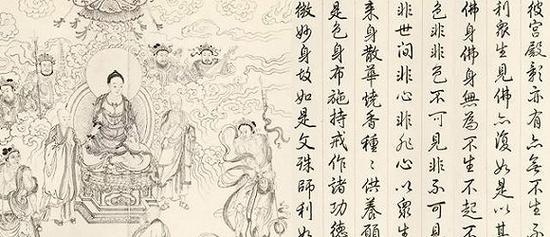 彼宮殿影亦有亦無不生不
利衆生見佛亦復如是以其
佛身佛身無為不生不起不
色非非色不可見非不可見
非世间非心非非心以衆生
来身散華燒香種々供養願
是色身布施持戒作諸功德
微妙身故如是文殊師利如